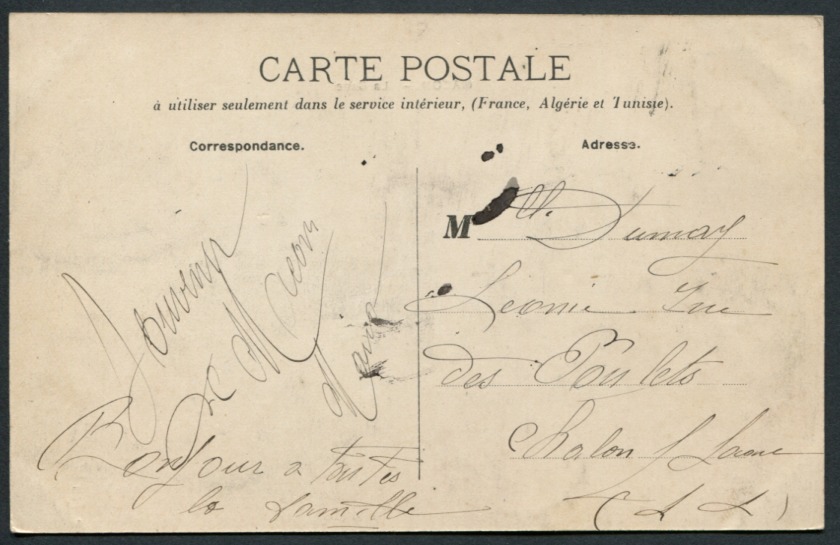 CARTE POSTALE
à utiliser seulement dans le service intérieur, (France, Algérie et Tunisie).
Correspondance.
Souvenir
de Macon
Bonjour a toutes
la famille
Adresse.
Mlle Dumay
Leonie Rue
des Poulets
Chalon s/ Saone
(S L)